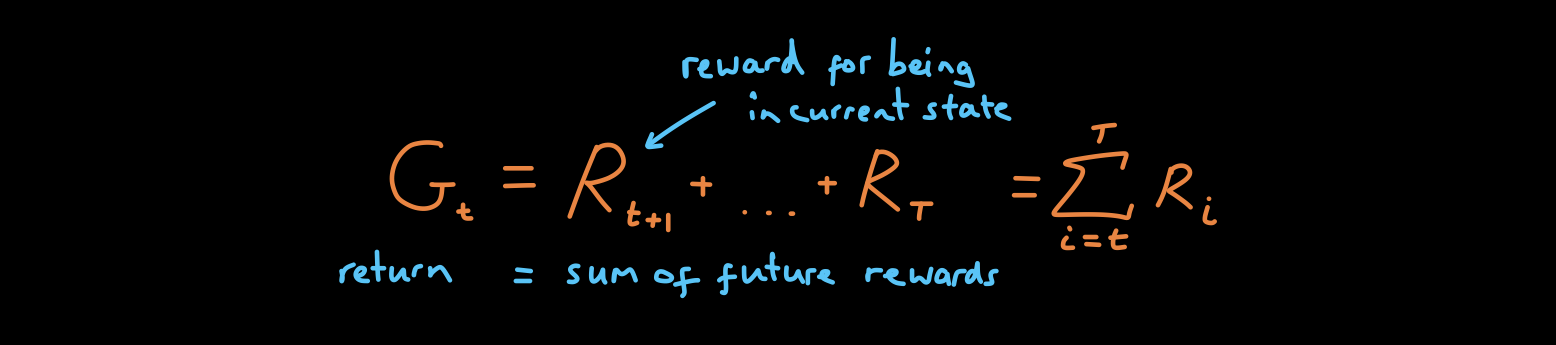 reward for being
in current state
G_t = R_{t+1} + ... + R_T = \sum_{i=t}^{T} R_i
return = sum of future rewards